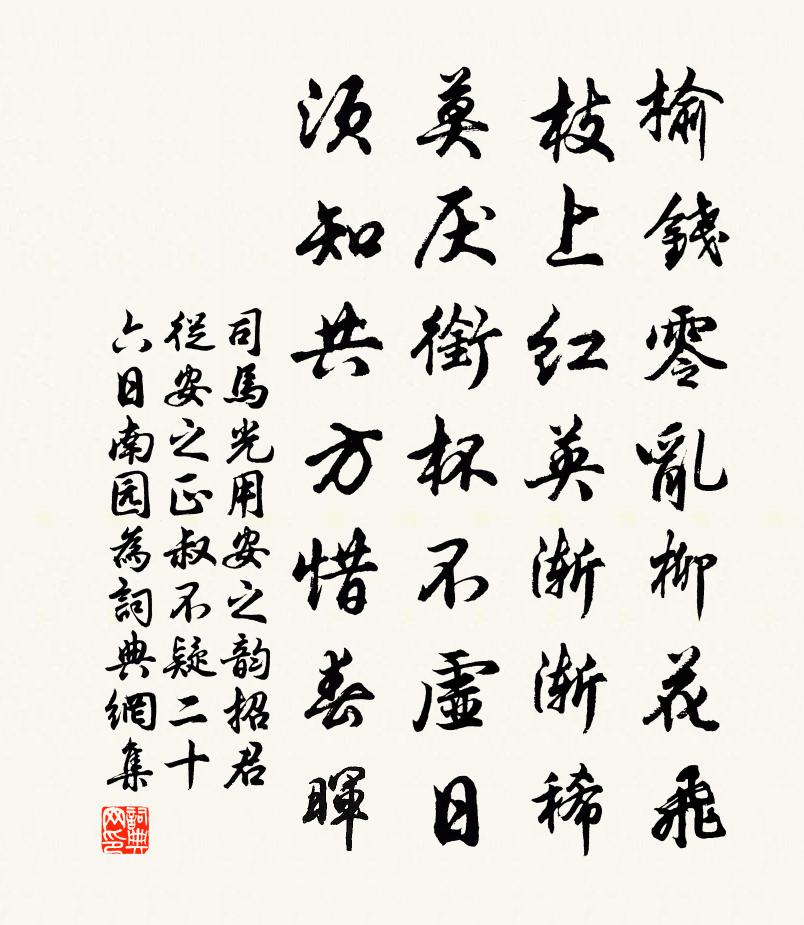 榆錢零亂柳花飛
枝上紅英漸漸稀
莫厌銜杯不虛日
須知共方惜春暉
司馬光用安之韵招君
從安之正叔不疑二十
六日南园為詞典網集
詞典网印